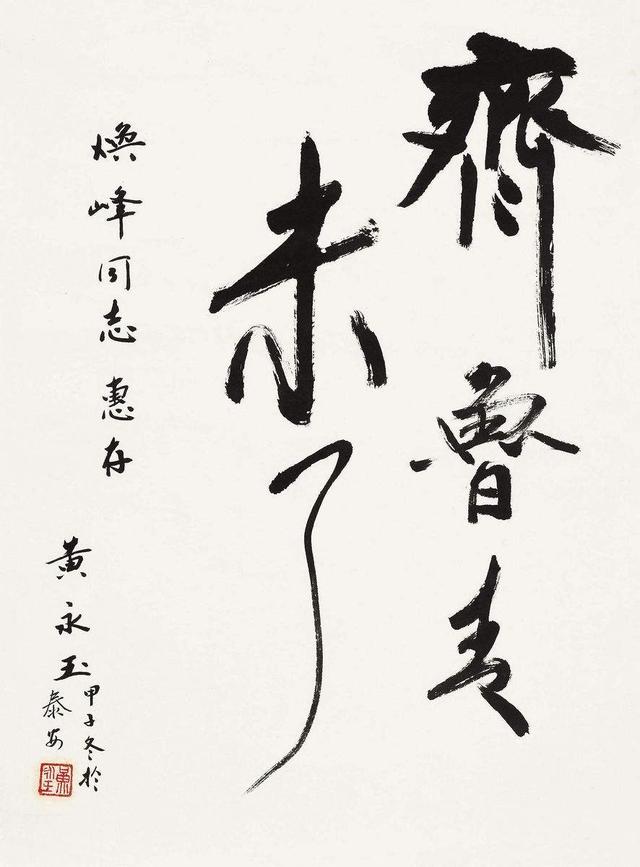 齊魯青
未了
煥峰同志惠存
黄永玉
甲子冬於
泰安
黄永玉